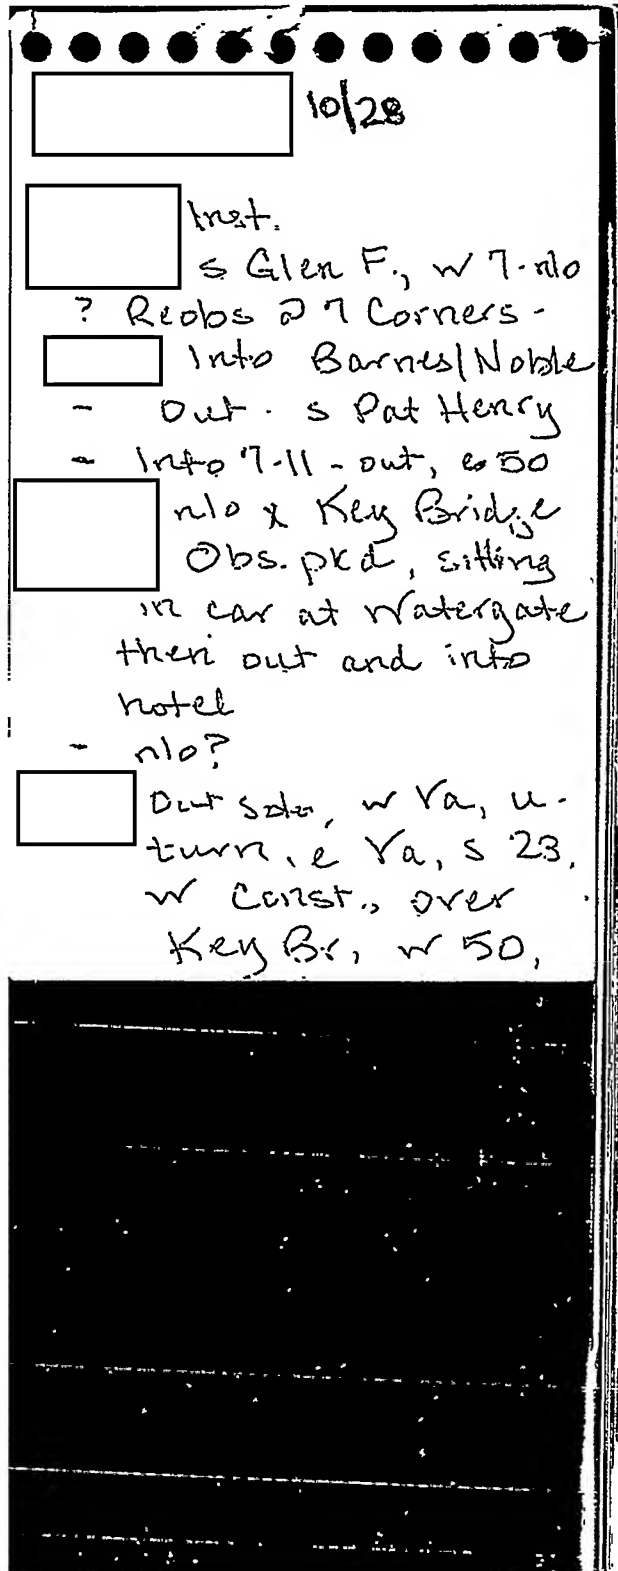 10/28
Inst.
s Glen F., w 7-nlo
? Reobs @ 7 Corners -
Into Barnes/Noble
- Out. s Pat Henry
- Into 7-11 - out, e 50
nlo x Key Bridge
Obs. pkd, sitting
in car at Watergate
then out and into
hotel
- nlo?
Out solo, w Va, u-
turn, e Va, s 23,
w Const., over
Key Br, w 50,